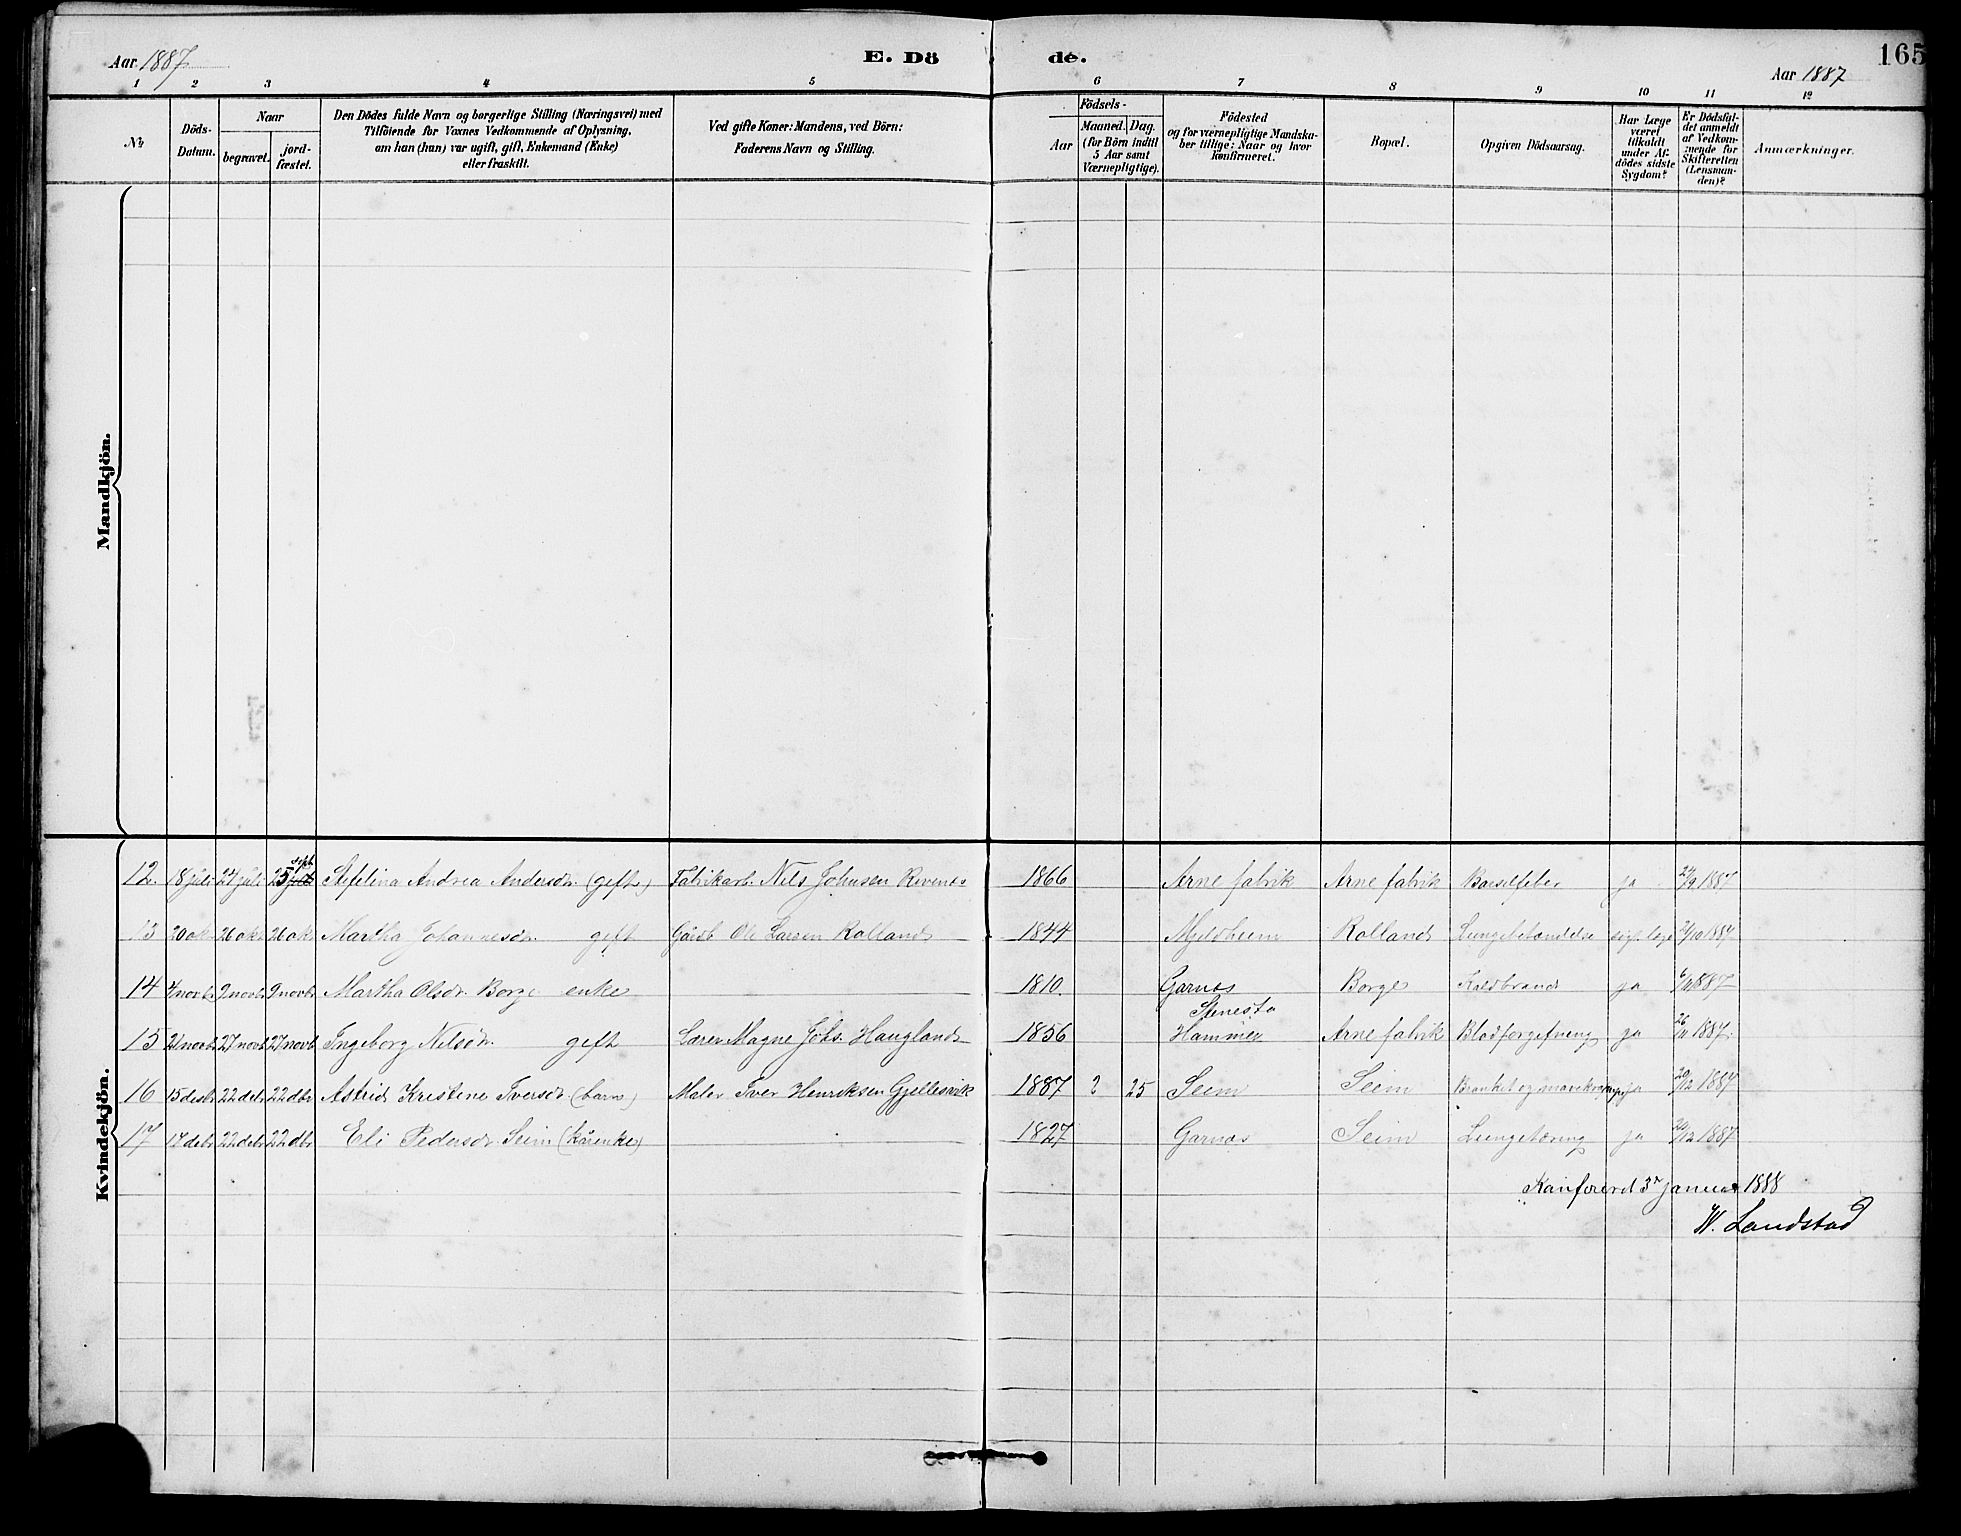 Aar 1887
E. Dö
de.
165
Aar 1887
1 2 3 4 5 6 7 8 9 10 11 12
Nr
Döds-
Datum.
Naar
begravet.
jord-
fæstet.
Den Dödes fulde Navn og borgerlige Stilling (Næringsvei) med
Tilföiende for Voxnes Vedkommende af Oplysning,
om han (hun) var ugift, gift, Enkemand (Enke)
eller fraskilt.
Ved gifte Koner: Mandens, ved Börn:
Faderens Navn og Stilling.
Födsels-
Aar
Maaned. Dag.
(for Börn indtil
5 Aar samt
Værnepligtige).
Födested
og for værnepligtige Mandska-
ber tillige: Naar og hvor
konfirmeret.
Bopæl.
Opgiven Dödsaarsag.
Har Læge
været
tilkaldt
under Af-
dödes sidste
Sygdom?
Er Dödsfal-
det anmeldt
af Vedkom-
mende for
Skifteretten
(Lensman-
den)?
Anmærkninger.
Mandkjön.
Kvindekjön.
sept
12. 18 juli 24 juli 25 juli Stefelina Andrea Andersdr. (gift) Fabrikarb. Nils Johnsen Revenes 1866 Arne fabrik Arne fabrik Barselfeber ja 24/9 1887
13 20 okt 26 okt 26 okt Martha Johannesdr. gift Gårdb Ole Larsen Rolland 1844 Mjeldheim Rolland Lungebetændelse 1887
14 4 novbr 9 novbr 9 novbr Martha Olsdr. Borge enke 1810. Garnæs Borge Koldbrand ja 6/11 1887
Stenestø
15 21 novbr 27 novb 27 novb Ingeborg Nilsdr. gift Lærer Magne Johs. Haugland 1856 Hammer Arne fabrik Blodforgiftning ja 26/11 1887.
16 15 desbr 22 debr 22 dbr Astrid Kristine Iversdr. (barn) Maler Iver Henriksen Gjellesvik 1887 2 25 Seim Seim Bronkit og ja 20/12 1887
17 17 debr 22 debr 22 dbr Eli Pedersdr. Seim (kårenke) 1827 Garnæs Seim Lungetæring ja 20/12 1887
Konfererd 3die januar 1888
W. Landstad